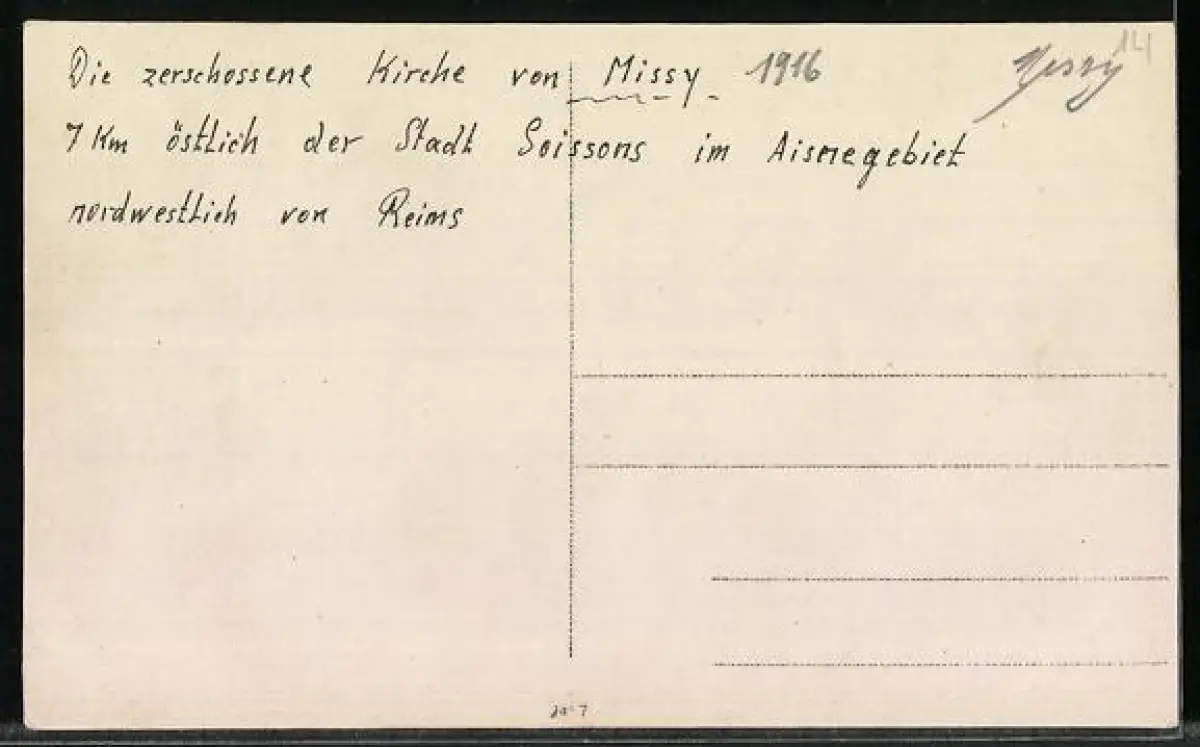 Die zerschossene Kirche von Missy 1916
Missy
14
7 Km östlich der Stadt Soissons im Aisnegebiet
nordwestlich von Reims